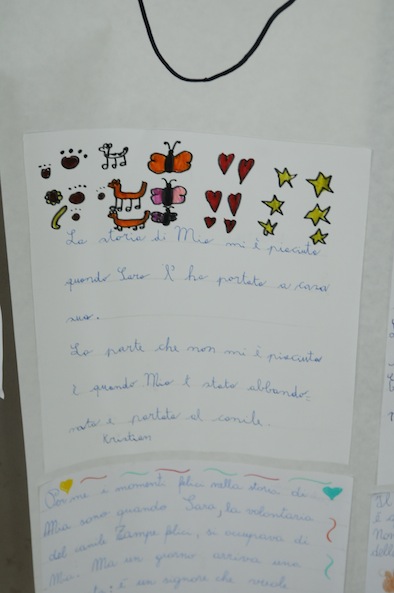 La storia di Mia mi è piaciuta
quando Sara l'ha portata a casa
sua.
La parte che non mi è piaciuta
è quando Mia è stata abbando:
nata e portata al canile.
Kristian
Per me i momenti felici nella storia di
Mia sono quando Sara, la volontaria
del canile Zampe felici, si occupava di
Mia. Ma un giorno arriva una
è un signore che vuole